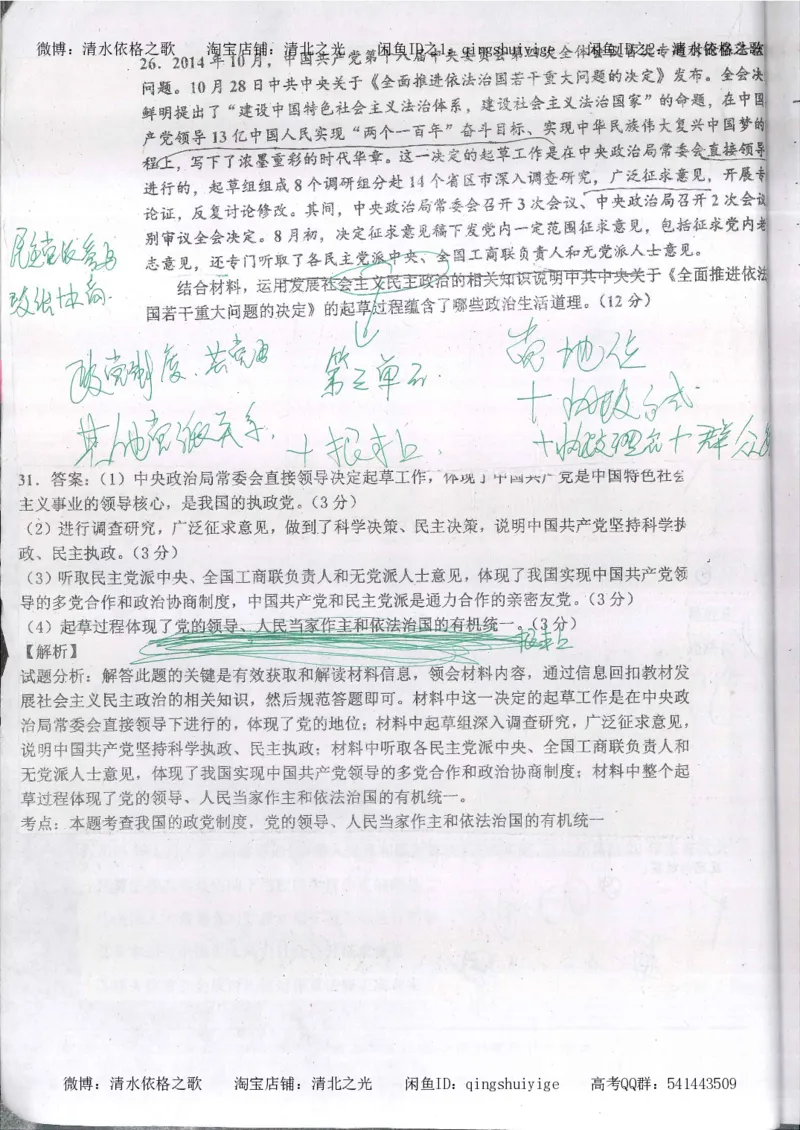 微博：清水依格之歌 淘宝店铺：清北之光 闲鱼ID之1：qingshuiyige 闲鱼ID之2：清水依格之歌
26．2014年10月，中国共产党第十八届中央委员会第四次全体会议首次专题讨论依法治
问题。10月28日中共中央关于《全面推进依法治国若干重大问题的决定》发布。全会决
鲜明提出了“建设中国特色社会主义法治体系，建设社会主义法治国家”的命题，在中国
产党领导13亿中国人民实现“两个一百年”奋斗目标、实现中华民族伟大复兴中国梦的
程上，写下了浓墨重彩的时代华章。这一决定的起草工作是在中央政治局常委会直接领导
进行的，起草组组成8个调研组分赴14个省区市深入调查研究，广泛征求意见，开展专
论证，反复讨论修改。其间，中央政治局常委会召开3次会议、中央政治局召开2次会议
别审议全会决定。8月初，决定征求意见稿下发党内一定范围征求意见，包括征求党内老
志意见，还专门听取了各民主党派中央、全国工商联负责人和无党派人士意见。
民主党派参与
政治协商．
结合材料，运用发展社会主义民主政治的相关知识说明中共中央关于《全面推进依法
国若干重大问题的决定》的起草过程蕴含了哪些政治生活道理。（12分）
政党制度．共党与
其他党派关系．
第三单元．
＋根本上．
党地位
＋执政方式
＋执政理念＋群众
31．答案：（1）中央政治局常委会直接领导决定起草工作，体现了中国共产党是中国特色社会
主义事业的领导核心，是我国的执政党。（3分）
（2）进行调查研究，广泛征求意见，做到了科学决策、民主决策，说明中国共产党坚持科学执
政、民主执政。（3分）
（3）听取民主党派中央、全国工商联负责人和无党派人士意见，体现了我国实现中国共产党领
导的多党合作和政治协商制度，中国共产党和民主党派是通力合作的亲密友党。（3分）
（4）起草过程体现了党的领导、人民当家作主和依法治国的有机统一。（3分）
根本上
【解析】
试题分析：解答此题的关键是有效获取和解读材料信息，领会材料内容，通过信息回扣教材发
展社会主义民主政治的相关知识，然后规范答题即可。材料中这一决定的起草工作是在中央政
治局常委会直接领导下进行的，体现了党的地位；材料中起草组深入调查研究，广泛征求意见，
说明中国共产党坚持科学执政、民主执政；材料中听取各民主党派中央、全国工商联负责人和
无党派人士意见，体现了我国实现中国共产党领导的多党合作和政治协商制度；材料中整个起
草过程体现了党的领导、人民当家作主和依法治国的有机统一。
考点：本题考查我国的政党制度，党的领导、人民当家作主和依法治国的有机统一
微博：清水依格之歌 淘宝店铺：清北之光 闲鱼ID：qingshuiyige 高考QQ群：541443509